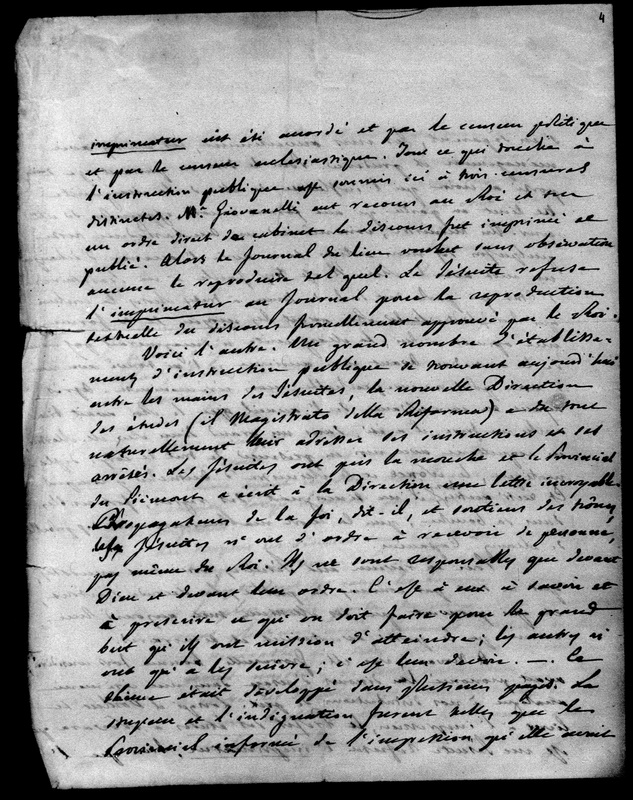 4
imprimatur eût été accordé et par le censeur politique
et par le censeur ecclésiastique. Tout ce qui touche à
l'instruction publique est soumis ici à trois censures
distinctes. Mr Giovanetti eut recours au Roi et sur
un ordre direct du cabinet le discours fut imprimé et
publié. Alors le Journal du lieu voulut sans observation
aucune le reproduire tel quel. Le Jésuite refusa
l'imprimatur au Journal pour la reproduction
textuelle du discours formellement approuvé par le Roi.
Voici l'autre. Un grand nombre d'établisse-
ments d'instruction publique se trouvant aujourd'hui
entre les mains des Jésuites, la nouvelle Direction
des études (il Magistrato della Riforma) a dû tout
naturellement leur adresser ses instructions et ses
arrêtés. Les Jésuites ont pris la mouche et le Provincial
du Piémont a écrit à la Direction une lettre incroyable.
Propagateurs de la foi, dit-il, et soutiens des trônes,
les Jésuites n'ont d'ordre à recevoir de personne,
pas même du Roi. Ils ne sont responsables que devant
Dieu et devant leur ordre. C'est à eux à savoir et
à prescrire ce qu'on doit faire pour le grand
but qu'ils ont mission d'atteindre; les autres n'
ont qu'à les suivre; c'est leur devoir. —. Ce
thème était développé dans plusieurs pages. La
stupeur et l'indignation furent telles que le
Provincial informé de l'impression qu'elle avait